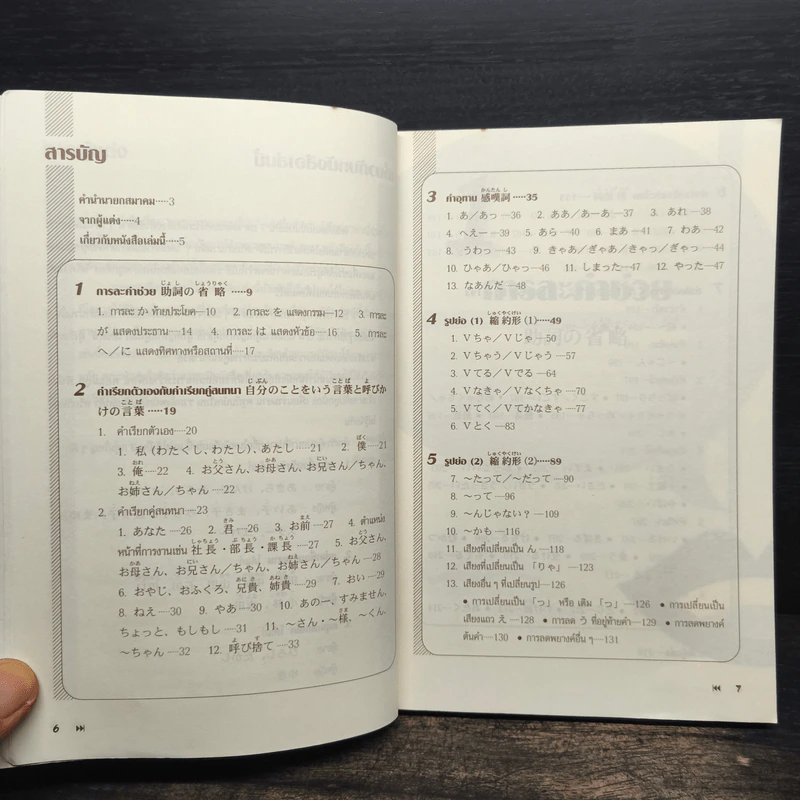 สารบัญ
คำนำนายกสมาคม·····3
จากผู้แต่ง·····4
เกี่ยวกับหนังสือเล่มนี้·····5
1 การละคำช่วย 助詞の省略 ·····9
1. การละ か ท้ายประโยค—10 2. การละ を แสดงกรรม—12 3. การละ
が แสดงประธาน—14 4. การละ は แสดงหัวข้อ—16 5. การละ
へ／に แสดงทิศทางหรือสถานที่—17
2 คำเรียกตัวเองกับคำเรียกคู่สนทนา 自分のことをいう言葉と呼びか
けの言葉 ·····19
1. คำเรียกตัวเอง—20
1. 私（わたくし、わたし）、あたし—21 2. 僕—21
3. 俺—22 4. お父さん、お母さん、お兄さん／ちゃん、
お姉さん／ちゃん—22
2. คำเรียกคู่สนทนา—23
1. あなた—26 2. 君—26 3. お前—27 4. ตำแหน่ง
หน้าที่การงานเช่น 社長・部長・課長—27 5. お父さん、
お母さん、お兄さん／ちゃん、お姉さん／ちゃん—28
6. おやじ、おふくろ、兄貴、姉貴—29 7. おい—29
8. ねえ—30 9. やあ—30 10. あのー、すみません、
ちょっと、もしもし—31 11. ～さん・～様、～くん、
～ちゃん—32 12. 呼び捨て—33
6
3 คำอุทาน 感嘆詞·····35
1. あ／あっ—36 2. ああ／あーあ—37 3. あれ—38
4. へえー—39 5. あら—40 6. まあ—41 7. わあ—42
8. うわっ—43 9. きゃあ／ぎゃあ／きゃっ／ぎゃっ—44
10. ひゃあ／ひゃっ—46 11. しまった—47 12. やった—47
13. なあんだ—48
4 รูปย่อ (1) 縮約形（1）·····49
1. Vちゃ／Vじゃ—50
2. Vちゃう／Vじゃう—57
3. Vてる／Vでる—64
4. Vなきゃ／Vなくちゃ—70
5. Vてく／Vてかなきゃ—77
6. Vとく—83
5 รูปย่อ (2) 縮約形（2）·····89
7. ～たって／～だって—90
8. ～って—96
9. ～んじゃない？—109
10. ～かも—116
11. เสียงที่เปลี่ยนเป็น ん—118
12. เสียงที่เปลี่ยนเป็น「りゃ」—123
13. เสียงอื่น ๆ ที่เปลี่ยนรูป—126
• การเปลี่ยนเป็น「っ」หรือ เติม「っ」—126 • การเปลี่ยนเป็น
เสียงแถว え—128 • การลด う ที่อยู่ท้ายคำ—129 • การลดพยางค์
ต้นคำ—130 • การลดพยางค์อื่น ๆ—131
7